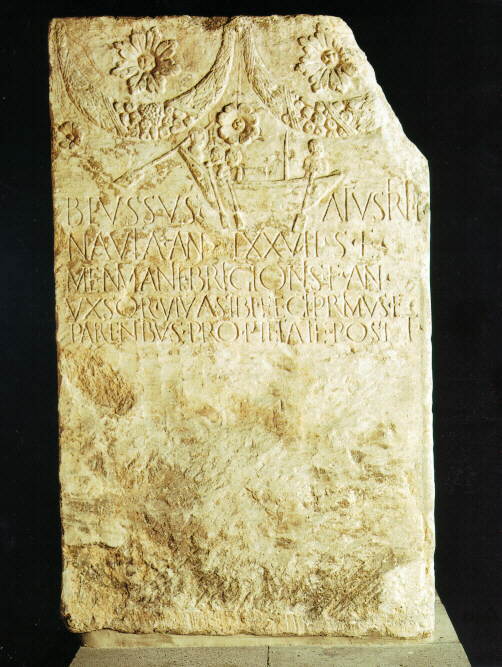 BLVSSVS ATVSIRI
NAVTA·AN·LXXV H·S·E
MENIMANE·BRIGIONIS·F·AN
VXSOR·VIVA·SIBI·FECIT·PRIMVS·F
PARENTIBVS·PRO PIETATE·POSIT